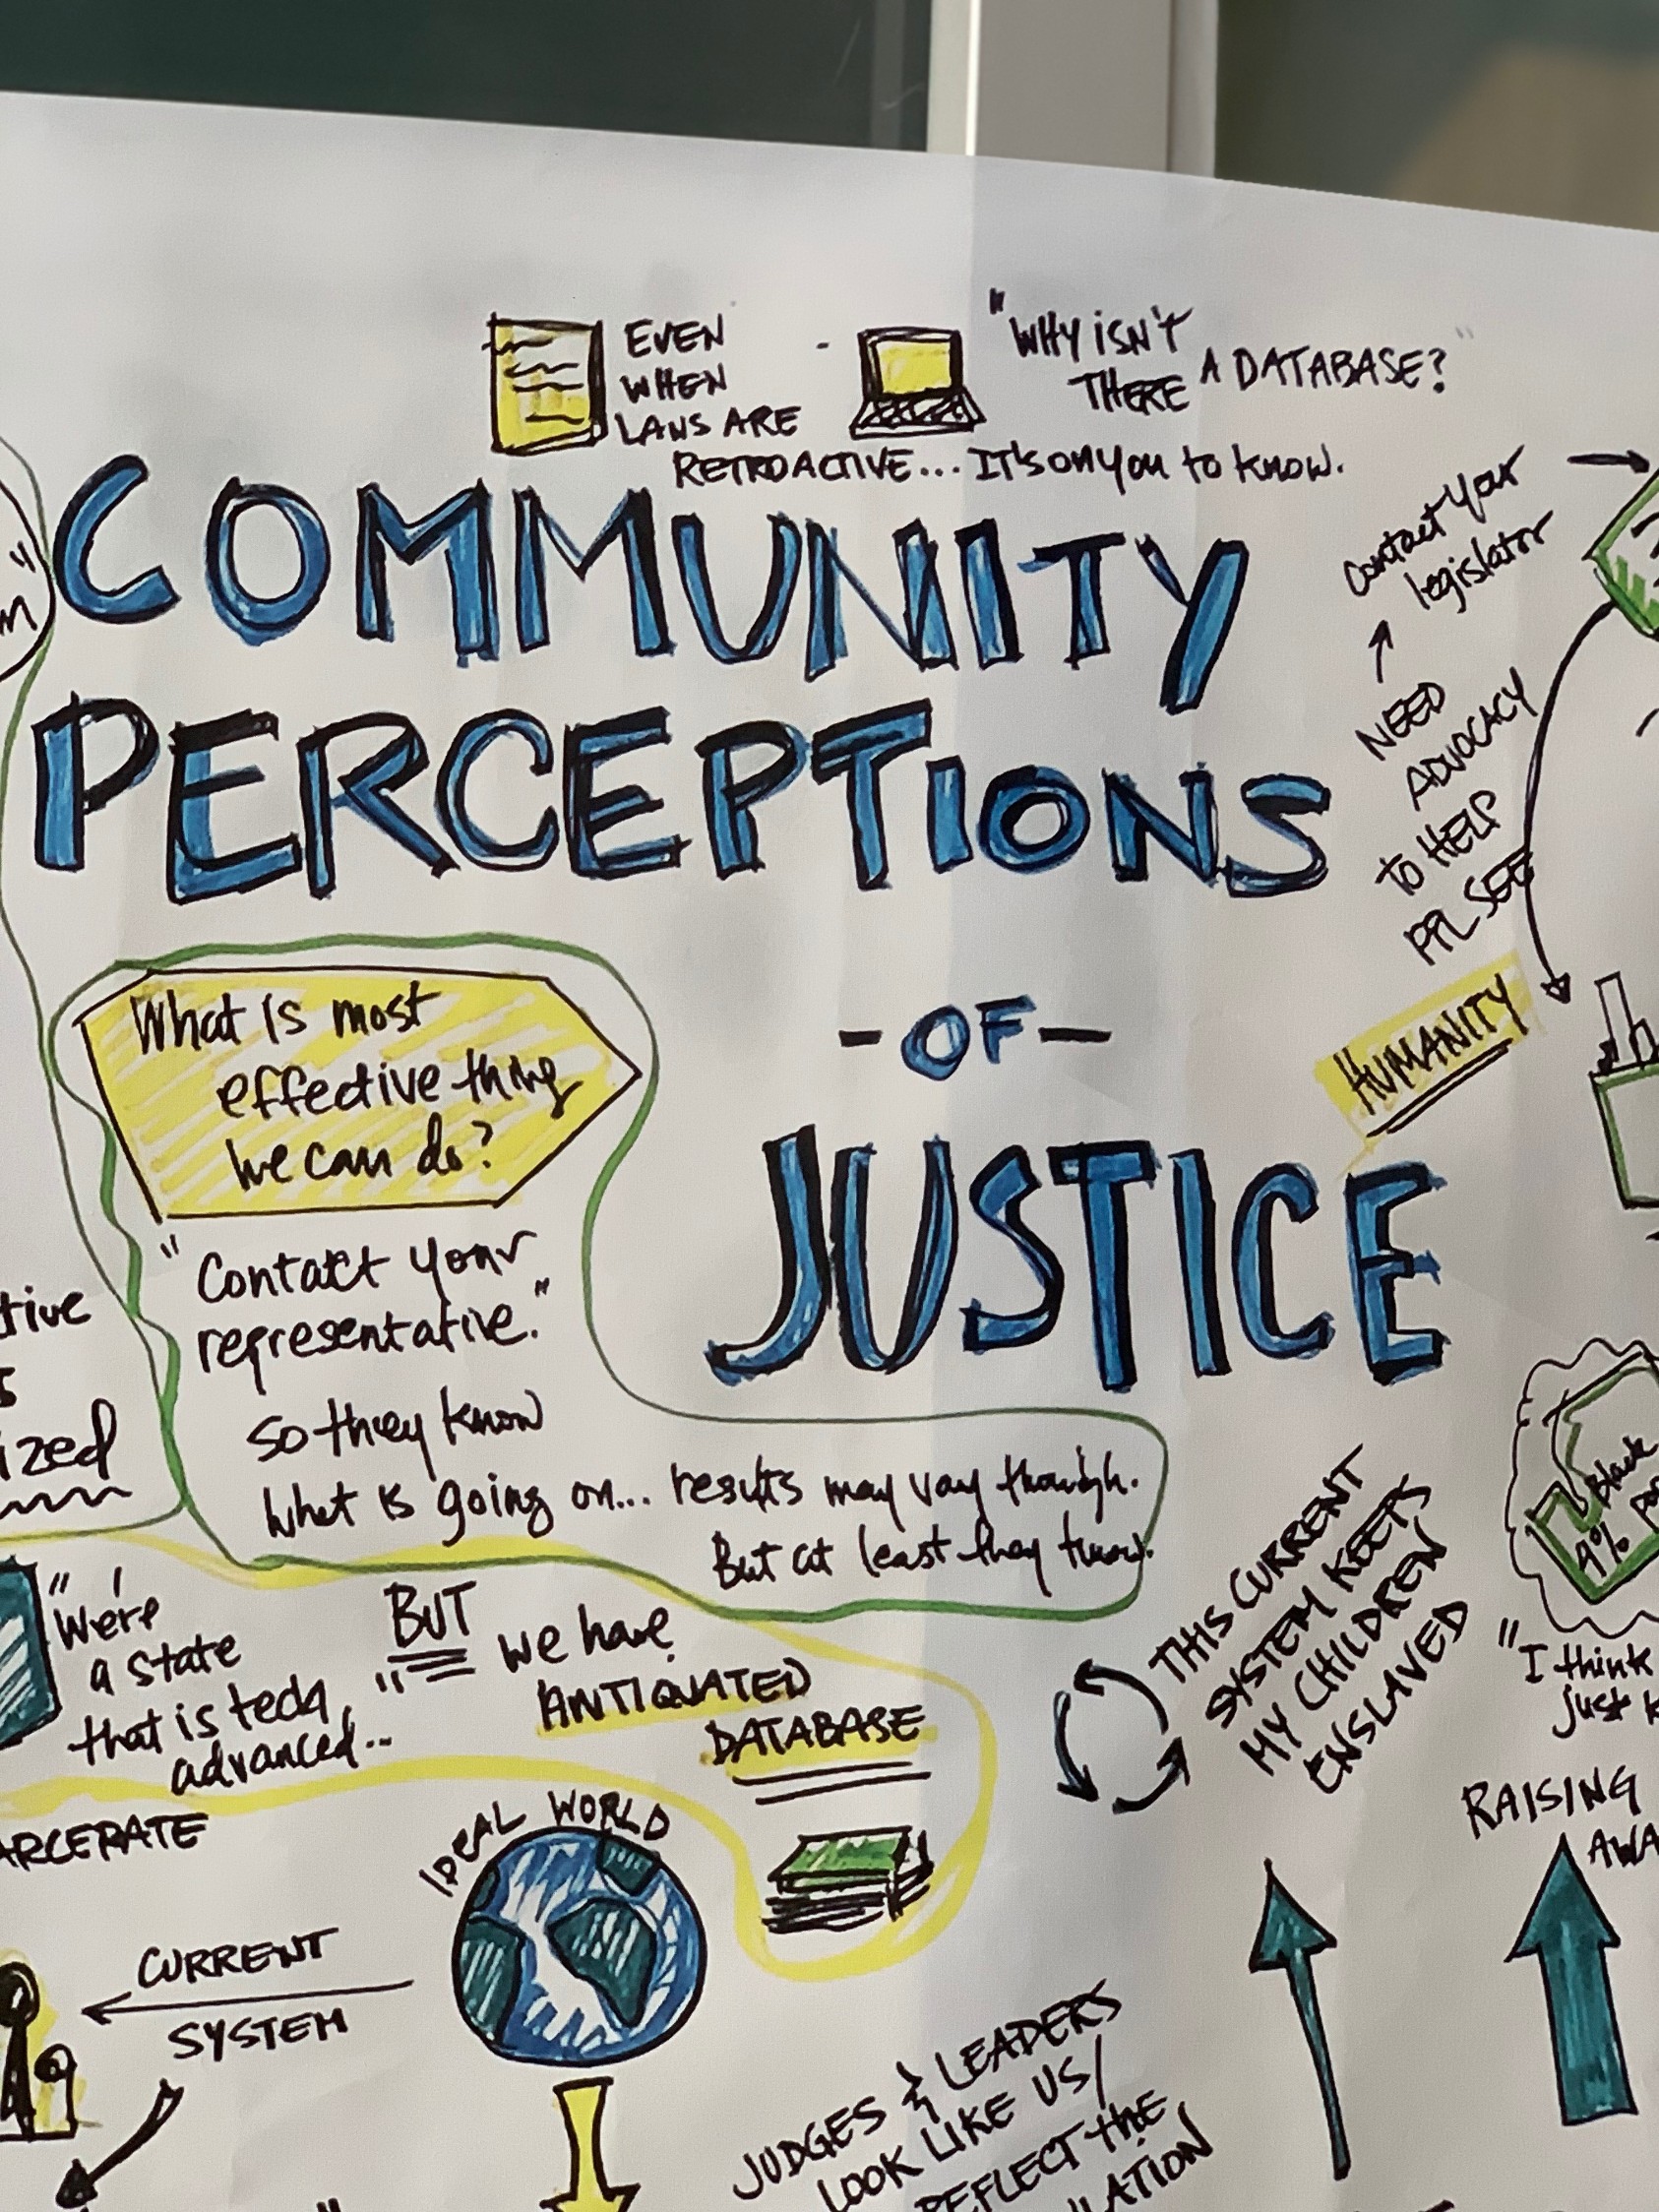 EVEN
WHEN
LAWS ARE
RETROACTIVE... IT'S ON YOU to KNOW.
"WHY ISN'T
THERE A DATABASE?"
COMMUNITY
PERCEPTIONS
- OF -
JUSTICE
Contact your
legislator
NEED
ADVOCACY
to HELP
PPL SEE
HUMANITY
What is most
effective thing
we can do?
"Contact your
representative."
so they know
what is going on... results may vary though.
But at least they know.
tive
ized
"We're
a state
that is tech
advanced...
BUT
" we have
ANTIQUATED
DATABASE
THIS CURRENT
SYSTEM KEEPS
MY CHILDREN
ENSLAVED
Black
9%
"I think
just
RAISING
AWA
ARCERATE
IDEAL WORLD
CURRENT
SYSTEM
JUDGES & LEADERS
LOOK LIKE US/
REFLECT the
LATION